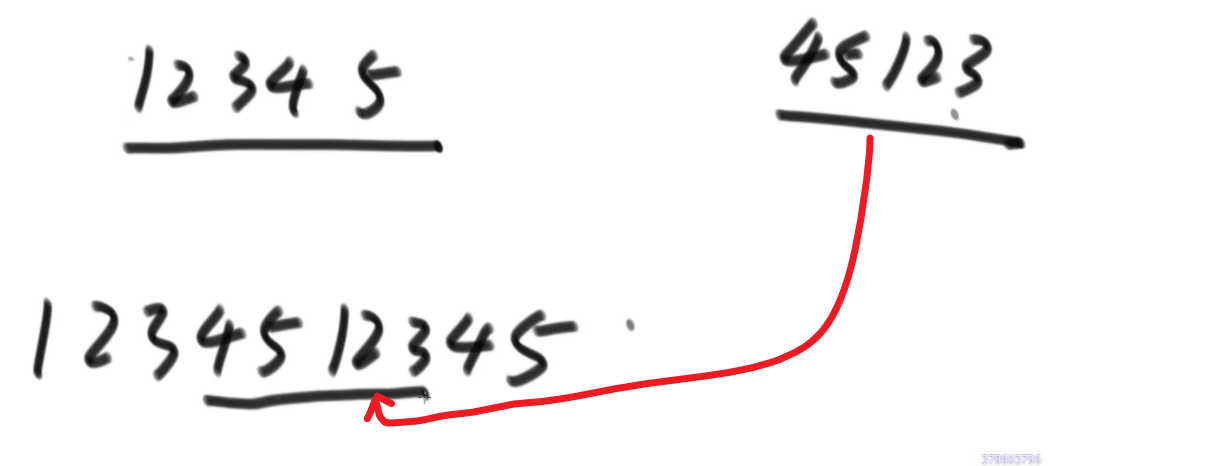 12345
45123
1234512345
378603796